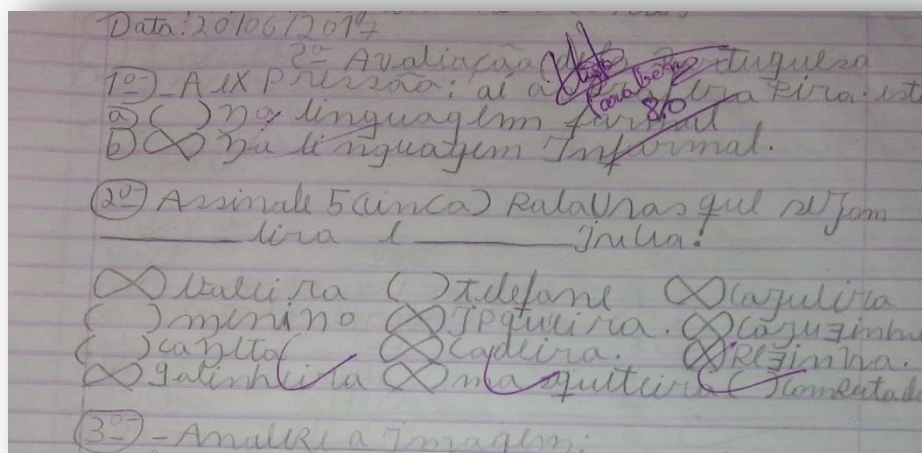 Data: 20/06/2017
2ª Avaliação de Portuguesa
Parabéns
8,0
1º - A expressão: ai a
a) ( ) na linguagem formal
b) (X) na linguagem Informal.
2º Assinale 5 (cinco) Palavras que sejam
_______eira e _______inha.
(X) ( ) telefone (X) cajueira
( ) menino (X) (X) cajuzinho
( ) caneta (X) cadeira. (X) Rezinha.
(X) galinheira (X) masquiteira ( ) computad
3º - Analise a Imagem: